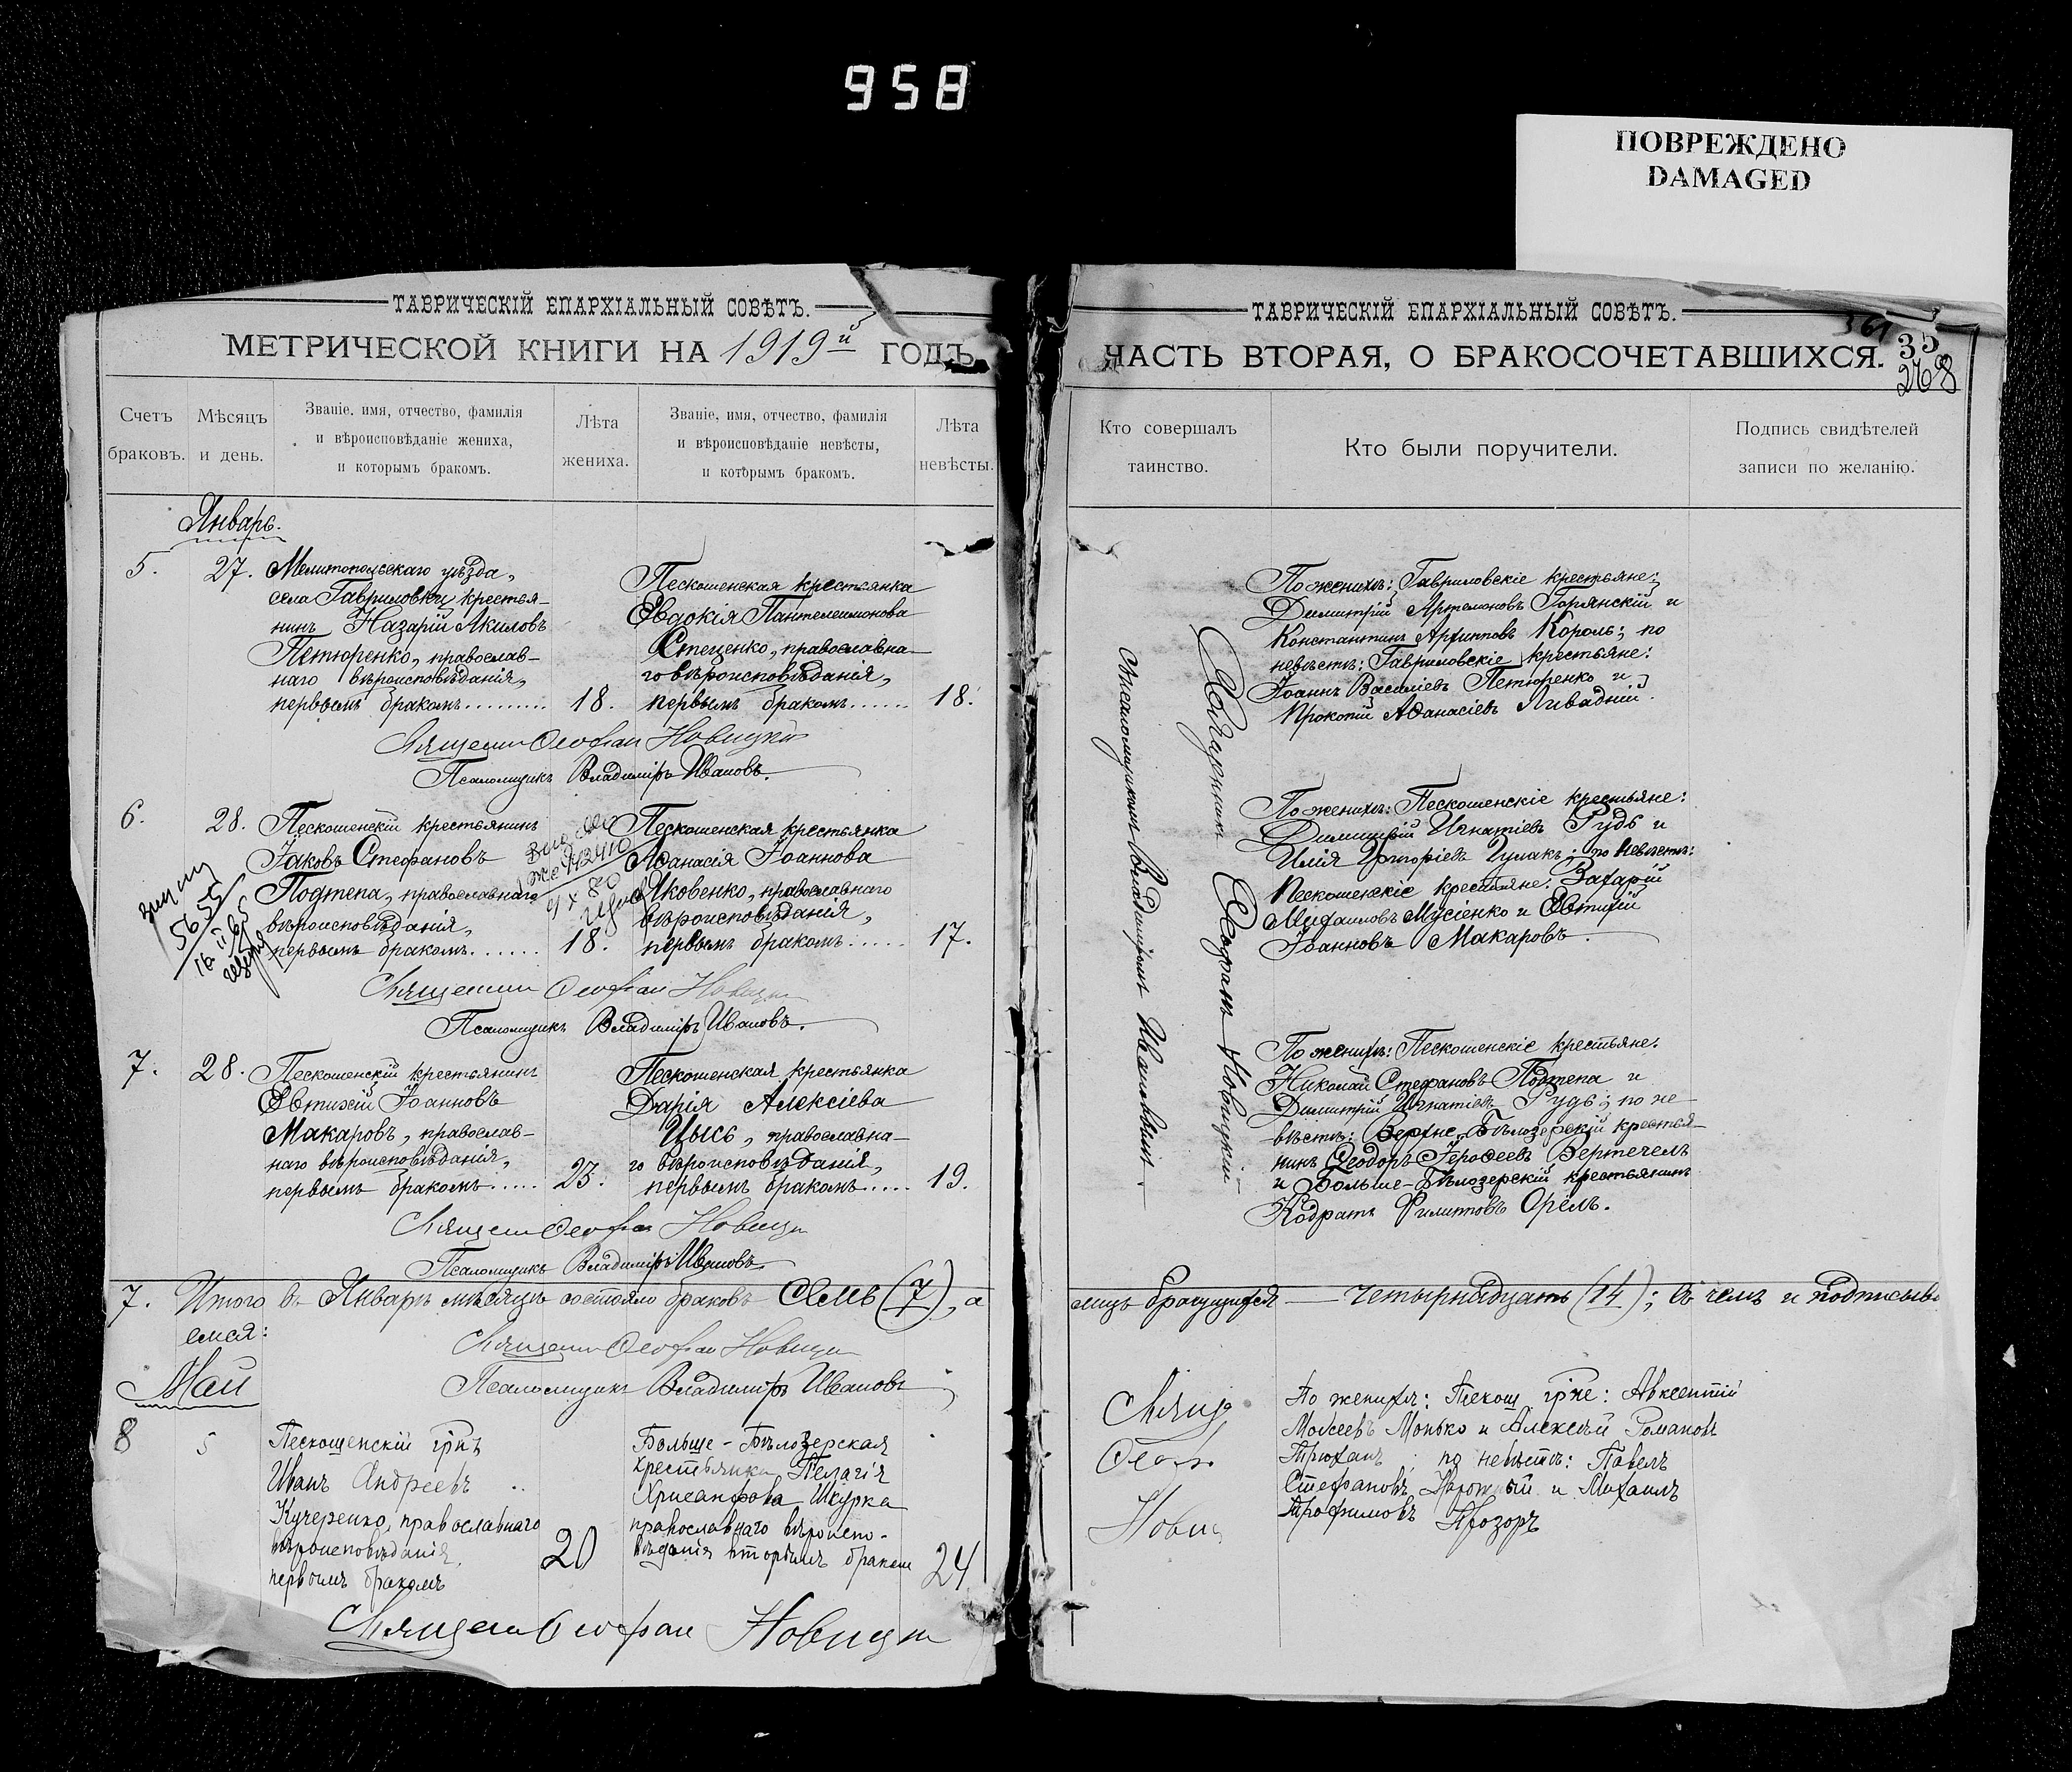 958
ПОВРЕЖДЕНО
DAMAGED
ТАВРИЧЕСКІЙ ЕПАРХІАЛЬНЫЙ СОВѢТЪ.
МЕТРИЧЕСКОЙ КНИГИ НА 1919й ГОДЪ
Счетъ браковъ.
Мѣсяцъ и день.
Званіе, имя, отчество, фамилія
и вѣроисповѣданіе жениха,
и которымъ бракомъ.
Лѣта жениха.
Званіе, имя, отчество, фамилія
и вѣроисповѣданіе невѣсты,
и которымъ бракомъ.
Лѣта невѣсты.
Январь.
5. 27.
Мелитопольскаго уѣзда,
села Гавриловки крестья-
нинъ Назарій Акиловъ
Петюренко, православ-
наго вѣроисповѣданія,
первымъ бракомъ......... 18.
Пескошенская крестьянка
Евдокія Пантелеимонова
Стеценко, православна-
го вѣроисповѣданія,
первымъ бракомъ...... 18.
Священ Феофан Новицкій
Псаломщикъ Владиміръ Ивановъ.
6. 28.
Пескошенскій крестьянинъ
Іаковъ Стефановъ
Подтепа, православнаго
вѣроисповѣданія,
первымъ бракомъ....... 18.
5655
Пескошенская крестьянка
Аѳанасія Іоаннова
Яковенко, православнаго
вѣроисповѣданія,
первымъ бракомъ...... 17.
Священ Феофан Новицкій
Псаломщикъ Владиміръ Ивановъ.
7. 28.
Пескошенскій крестьянинъ
Евтихій Іоанновъ
Макаровъ, православ-
наго вѣроисповѣданія,
первымъ бракомъ..... 23.
Пескошенская крестьянка
Дарія Алексіева
Цысь, православна-
го вѣроисповѣданія,
первымъ бракомъ..... 19.
Священ Феофан Новицкій
Псаломщикъ Владиміръ Ивановъ
7. Итого въ Январѣ мѣсяцѣ состояло браковъ семь (7), а
емся:
Священ Феофан Новицкій
Псаломщикъ Владиміръ Ивановъ
Май
8 5
Пескошенскій гр-нъ
Иванъ Андреевъ
Кучеренко, православнаго
вѣроисповѣданія,
первымъ бракомъ
20
Больше-Бѣлозерская
крестьянка Пелагія
Хрисанфова Шкурка
православнаго вѣроиспо-
вѣданія вторымъ бракомъ
24
Священ Феофан Новицкій
ТАВРИЧЕСКІЙ ЕПАРХІАЛЬНЫЙ СОВѢТЪ.
ЧАСТЬ ВТОРАЯ, О БРАКОСОЧЕТАВШИХСЯ.
361
35
268
Кто совершалъ
таинство.
Кто были поручители.
Подпись свидѣтелей
записи по желанію.
Священникъ Феофанъ Новицкій
Псаломщикомъ Владиміромъ Ивановымъ.
По женихѣ: Гавриловскіе крестьяне:
Димитрій Артемоновъ Горянскій и
Константинъ Архипповъ Король; по
невѣстѣ: Гавриловскіе крестьяне:
Іоаннъ Василіевъ Петюренко и
Прокопій Аѳанасіевъ Ливадній.
По женихѣ: Пескошенскіе крестьяне:
Димитрій Игнатіевъ Рудь и
Илія Григоріевъ Чумакъ; по невѣстѣ:
Пескошенскіе крестьяне: Захарій
Михаиловъ Мусіенко и Евтихій
Іоанновъ Макаровъ.
По женихѣ: Пескошенскіе крестьяне:
Николай Стефановъ Подтепа и
Димитрій Игнатіевъ Рудь; по не-
вѣстѣ: Верхне-Бѣлозерскій крестья-
нинъ Ѳеодоръ Іероѳеевъ Вертечелъ
и Больше-Бѣлозерскій крестьянинъ
Кодратъ Филипповъ Орѣлъ.
лицъ брачущихся — четырнадцать (14); въ чемъ и подписыва
Свящ
Феоф
Нови
По женихѣ: Пескош гр-не: Авксентій
Моѵсеевъ Монько и Алексѣй Романовъ
Трюхан; по невѣстѣ: Павелъ
Стефановъ и Михаилъ
Трофимовъ Прозоръ